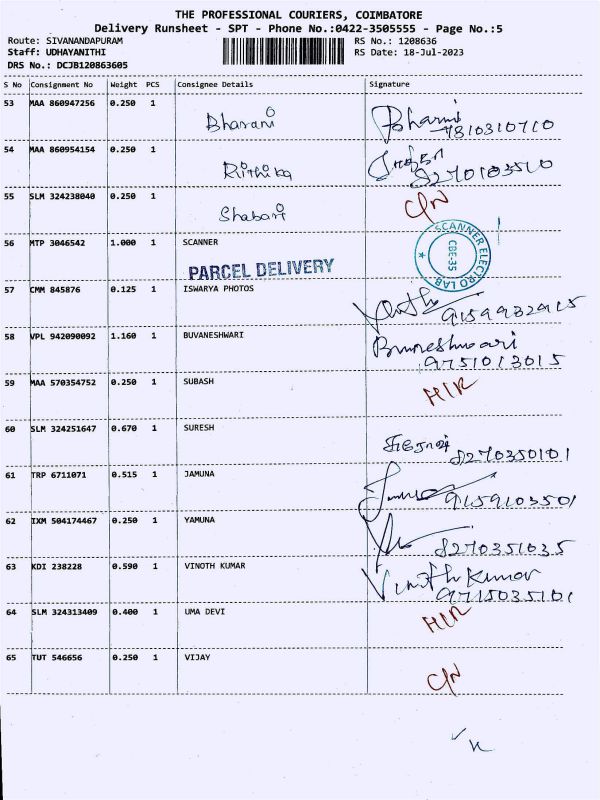 THE PROFESSIONAL COURIERS, COIMBATORE
Delivery Runsheet - SPT - Phone No.:0422-3505555 - Page No.:5
Route: SIVANANDAPURAM RS No.: 1208636
Staff: UDHAYANITHI RS Date: 18-Jul-2023
DRS No.: DCJB120863605
S No Consignment No Weight PCS Consignee Details Signature
53 MAA 860947256 0.250 1 Bharani
54 MAA 860954154 0.250 1 Rithika 8270103510
55 SLM 324238040 0.250 1 Shabari C/N
56 MTP 3046542 1.000 1 SCANNER SCANNER ELECTRO LAB CBE-35
PARCEL DELIVERY
57 CMM 845876 0.125 1 ISWARYA PHOTOS 9159932915
58 VPL 942090092 1.160 1 BUVANESHWARI Buvaneshwari
9751013015
59 MAA 570354752 0.250 1 SUBASH H/R
60 SLM 324251647 0.670 1 SURESH 8270350101
61 TRP 6711071 0.515 1 JAMUNA 9159103501
62 IXM 504174467 0.250 1 YAMUNA 8270351035
63 KDI 238228 0.590 1 VINOTH KUMAR Vinoth Kumar
9715035101
64 SLM 324313409 0.400 1 UMA DEVI H/R
65 TUT 546656 0.250 1 VIJAY C/N